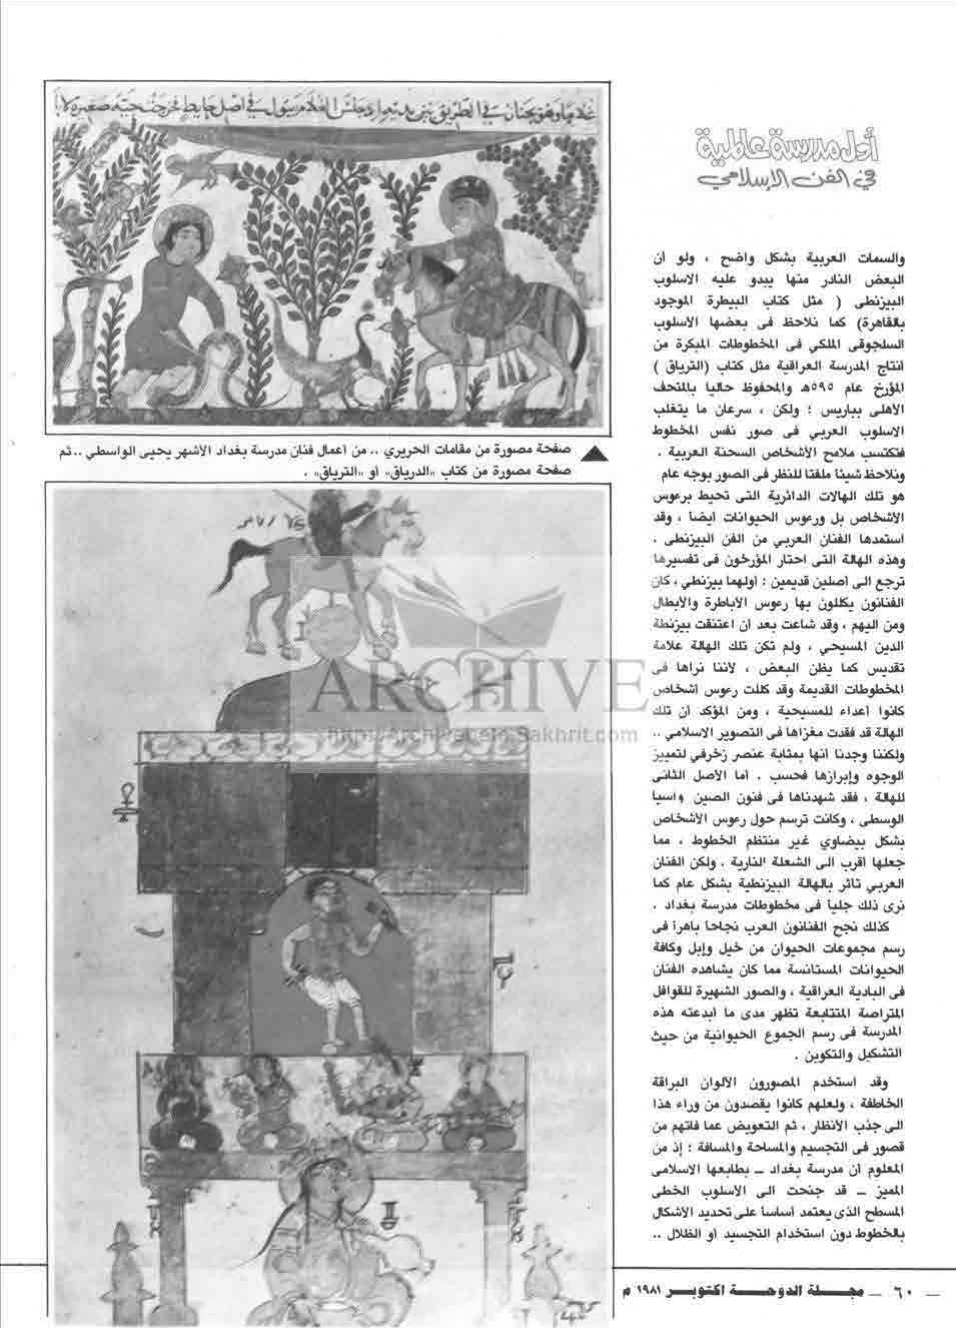 أول مدرسة عالمية
في الفن الإسلامي
والسمات العربية بشكل واضح ، ولو أن
البعض النادر منها يبدو عليه الاسلوب
البيزنطى ( مثل كتاب البيطرة الموجود
بالقاهرة) كما نلاحظ فى بعضها الاسلوب
السلجوقى الملكي فى المخطوطات المبكرة من
انتاج المدرسة العراقية مثل كتاب (الترياق )
المؤرخ عام ٥٩٥هـ والمحفوظ حاليا بالمتحف
الأهلى بباريس ؛ ولكن ، سرعان ما يتغلب
الاسلوب العربي فى صور نفس المخطوط
فتكتسب ملامح الأشخاص السحنة العربية .
ونلاحظ شيئا ملفتا للنظر فى الصور بوجه عام
هو تلك الهالات الدائرية التى تحيط برعوس
الأشخاص بل ورعوس الحيوانات ايضا ، وقد
استمدها الفنان العربي من الفن البيزنطى .
وهذه الهالة التى احتار المؤرخون فى تفسيرها
ترجع الى اصلين قديمين : أولهما بيزنطي ، كان
الفنانون يكللون بها رعوس الأباطرة والأبطال
ومن اليهم ، وقد شاعت بعد ان اعتنقت بيزنطة
الدين المسيحي ، ولم تكن تلك الهالة علامة
تقديس كما يظن البعض ، لاننا نراها فى
المخطوطات القديمة وقد كللت رعوس اشخاص
كانوا أعداء للمسيحية ، ومن المؤكد أن تلك
الهالة قد فقدت مغزاها فى التصوير الاسلامي ..
ولكننا وجدنا انها بمثابة عنصر زخرفي لتمييز
الوجوه وإبرازها فحسب . أما الأصل الثانى
للهالة ، فقد شهدناها فى فنون الصين وأسيا
الوسطى ، وكانت ترسم حول رعوس الأشخاص
بشكل بيضاوي غير منتظم الخطوط ، مما
جعلها اقرب الى الشعلة النارية . ولكن الفنان
العربي تاثر بالهالة البيزنطية بشكل عام كما
نرى ذلك جليا فى مخطوطات مدرسة بغداد .
كذلك نجح الفنانون العرب نجاحا باهرا فى
رسم مجموعات الحيوان من خيل وإبل وكافة
الحيوانات المستانسة مما كان يشاهده الفنان
فى البادية العراقية ، والصور الشهيرة للقوافل
المتراصة المتتابعة تظهر مدى ما ابدعته هذه
المدرسة فى رسم الجموع الحيوانية من حيث
التشكيل والتكوين .
وقد استخدم المصورون الألوان البراقة
الخاطفة ، ولعلهم كانوا يقصدون من وراء هذا
الى جذب الأنظار ، ثم التعويض عما فاتهم من
قصور فى التجسيم والمساحة والمسافة : إذ من
المعلوم ان مدرسة بغداد ـ بطابعها الاسلامى
المميز ـ قد جنحت الى الاسلوب الخطى
المسطح الذى يعتمد أساسا على تحديد الأشكال
بالخطوط دون استخدام التجسيد او الظلال ..
صفحة مصورة من مقامات الحريري .. من اعمال فنان مدرسة بغداد الأشهر يحيى الواسطي .. ثم
صفحة مصورة من كتاب «الدرياق» او «الترياق» .
ARCHIVE
http://Archivebeta.Sakhrit.com
٦٠ ـ مجلة الدوحة اكتوبر ١٩٨١ م